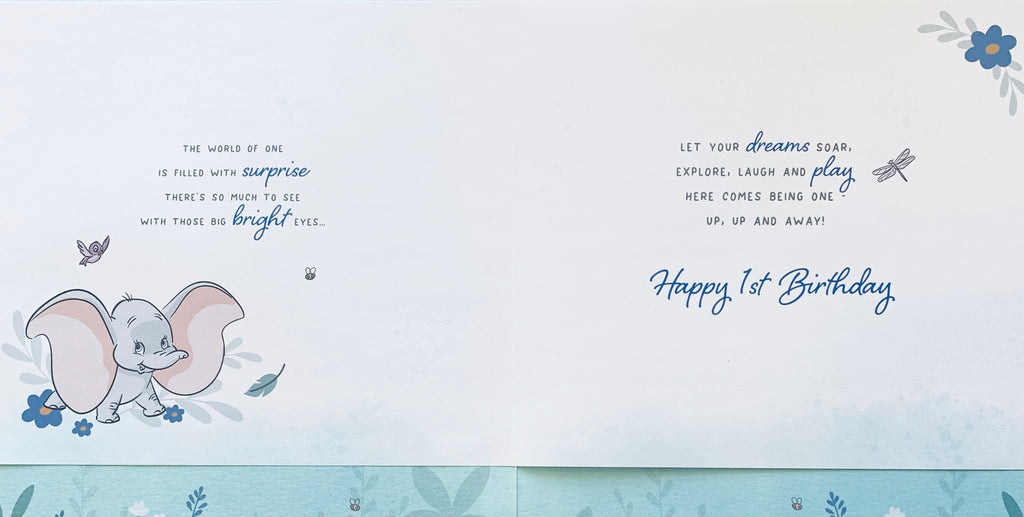 THE WORLD OF ONE
IS FILLED WITH surprise
THERE'S SO MUCH TO SEE
WITH THOSE BIG bright EYES...
LET YOUR dreams SOAR,
EXPLORE, LAUGH AND play
HERE COMES BEING ONE -
UP, UP AND AWAY!
Happy 1st Birthday